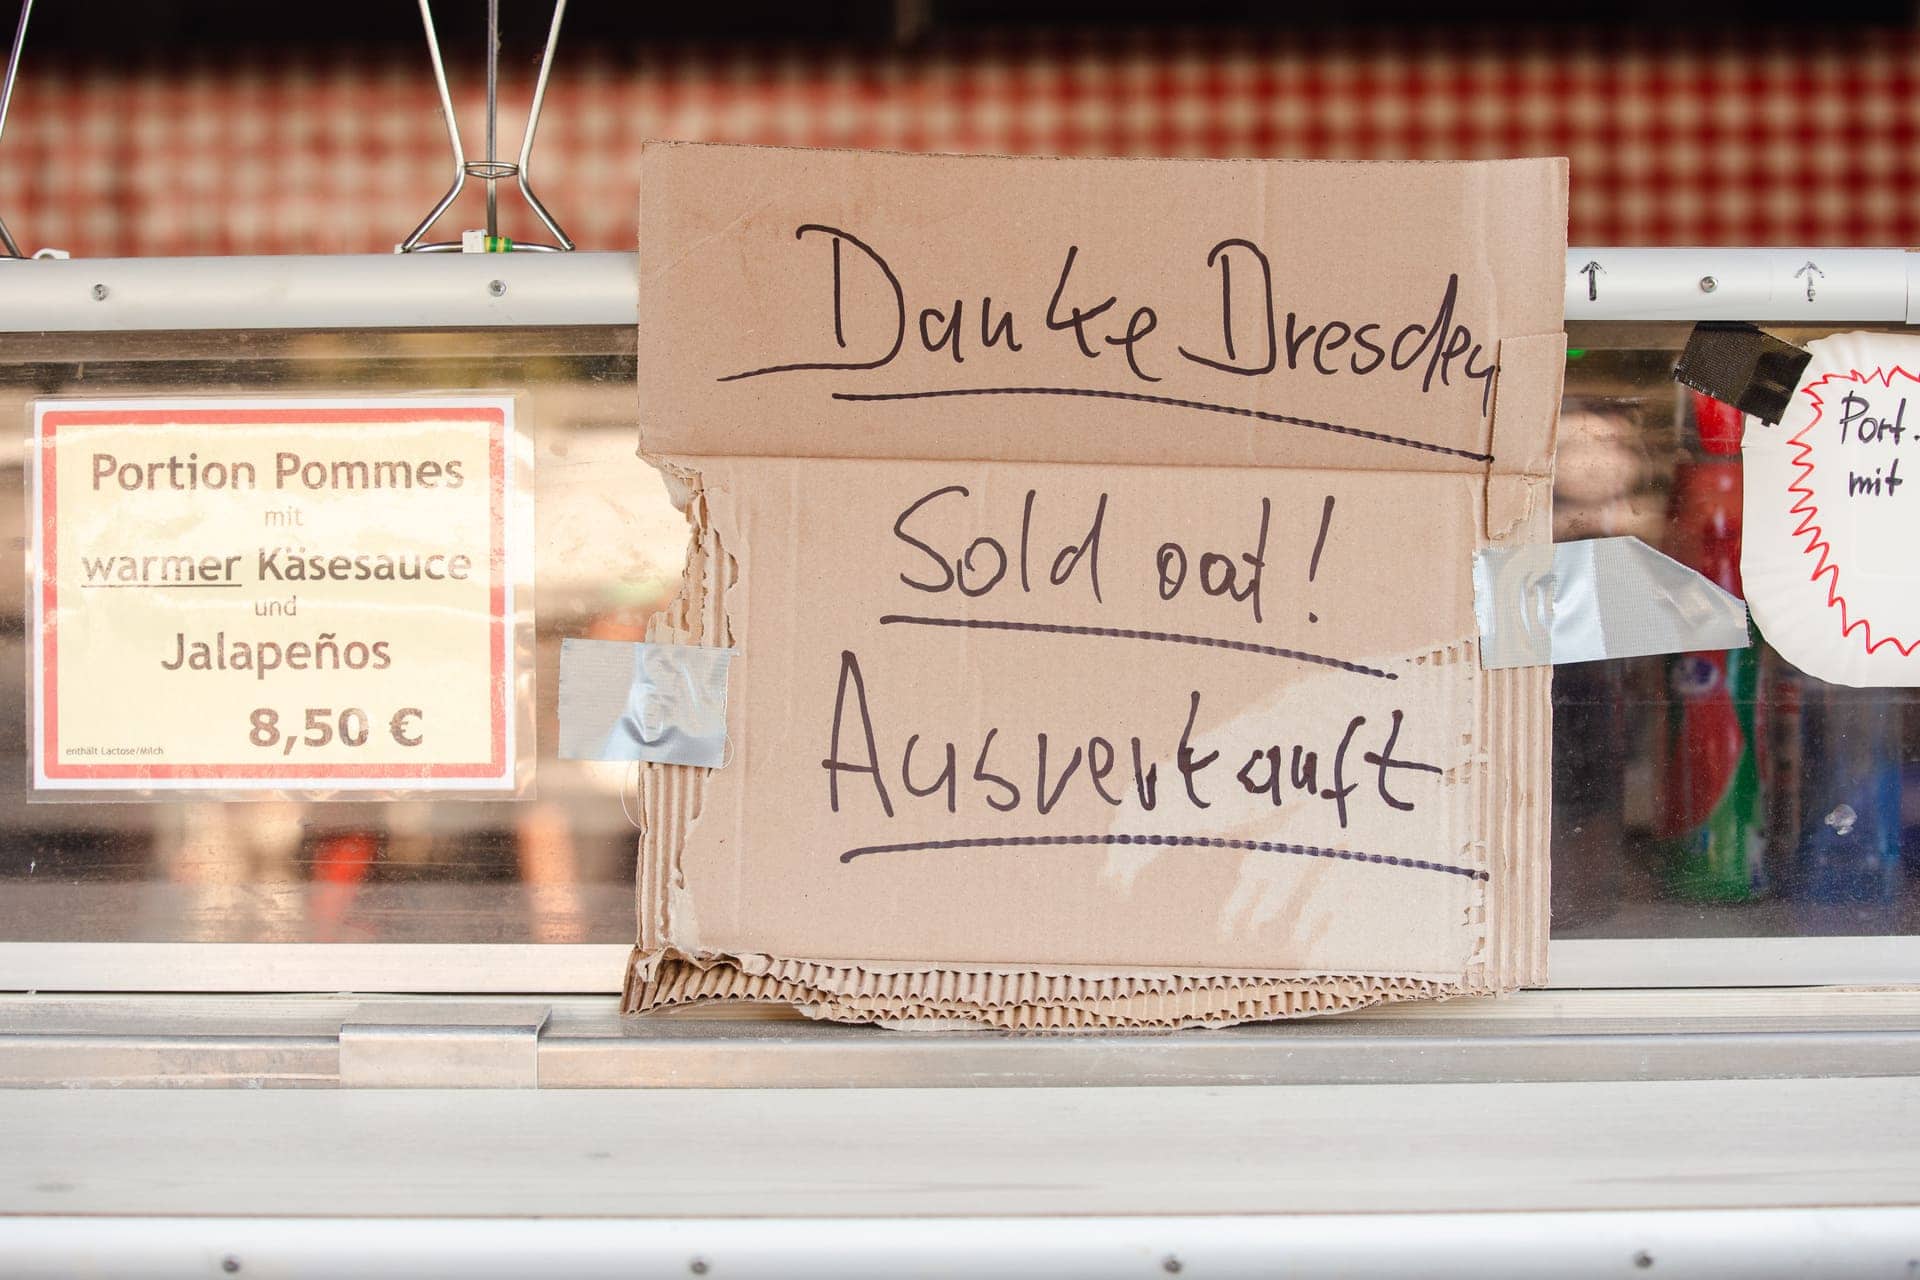 Portion Pommes
mit
warmer Käsesauce
und
Jalapeños
8,50 €
enthält Lactose/Milch
Danke Dresden
Sold out!
Ausverkauft
Port.
mit